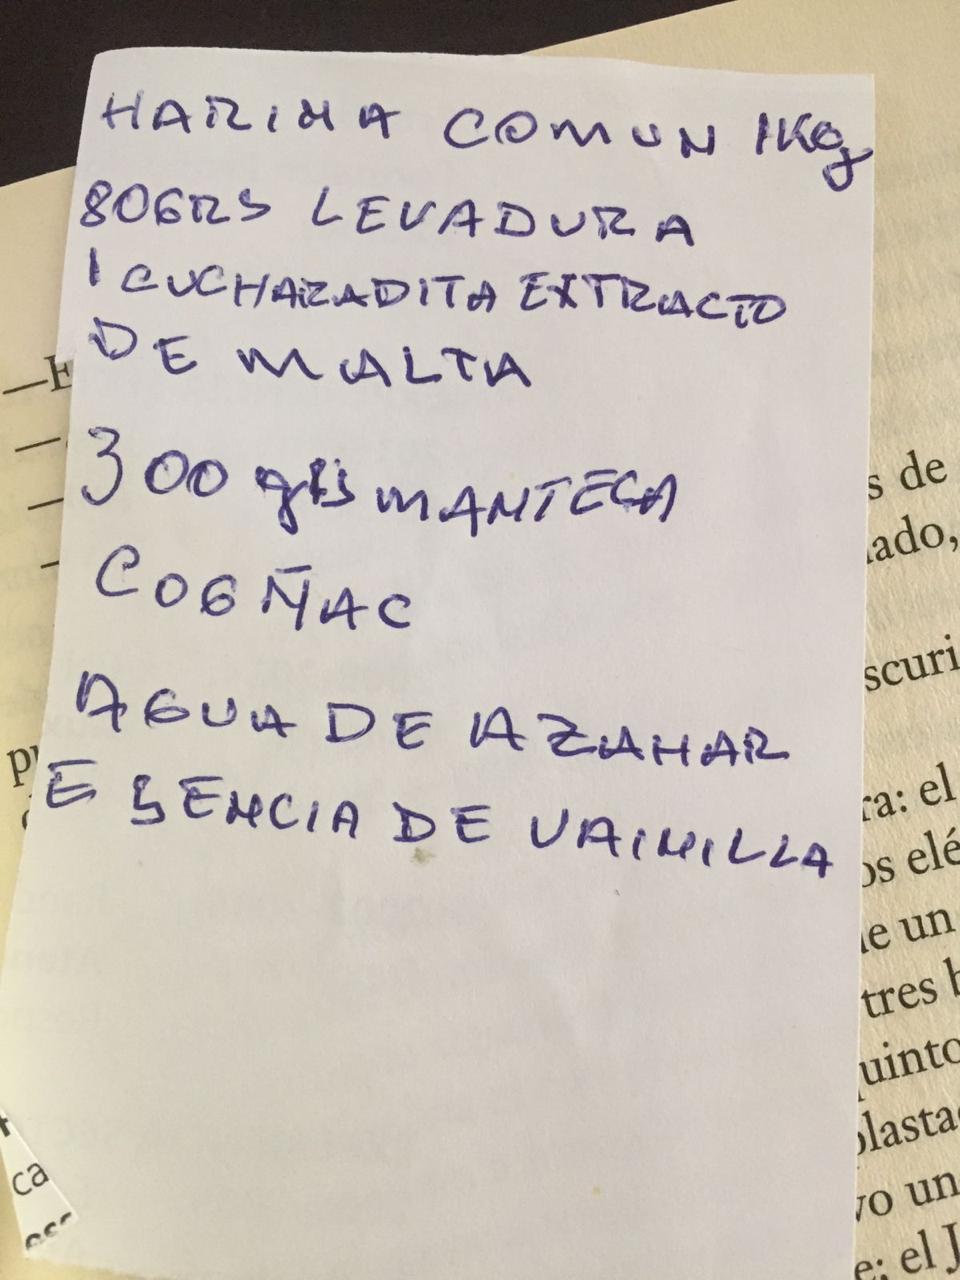 HARINA COMUN 1Kg
80GRS LEVADURA
1 CUCHARADITA EXTRACTO
DE MALTA
300 grs MANTECA
COGÑAC
AGUA DE AZAHAR
ESENCIA DE VAINILLA
s de
ado,
scuri
ra: el
os elé
e un
tres
uinto
plasta
vo un
e: el J
ca